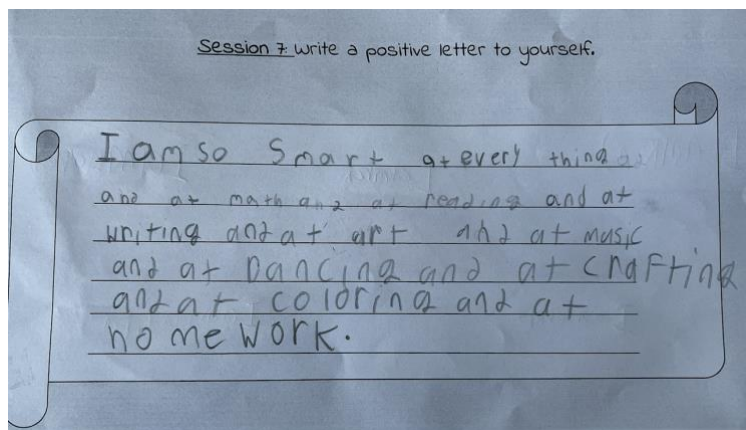 Session 7: Write a positive letter to yourself.
I am so Smart at every thing
and at math and at reading and at
writing and at art and at music
and at Dancing and at crafting
and at coloring and at
home work.